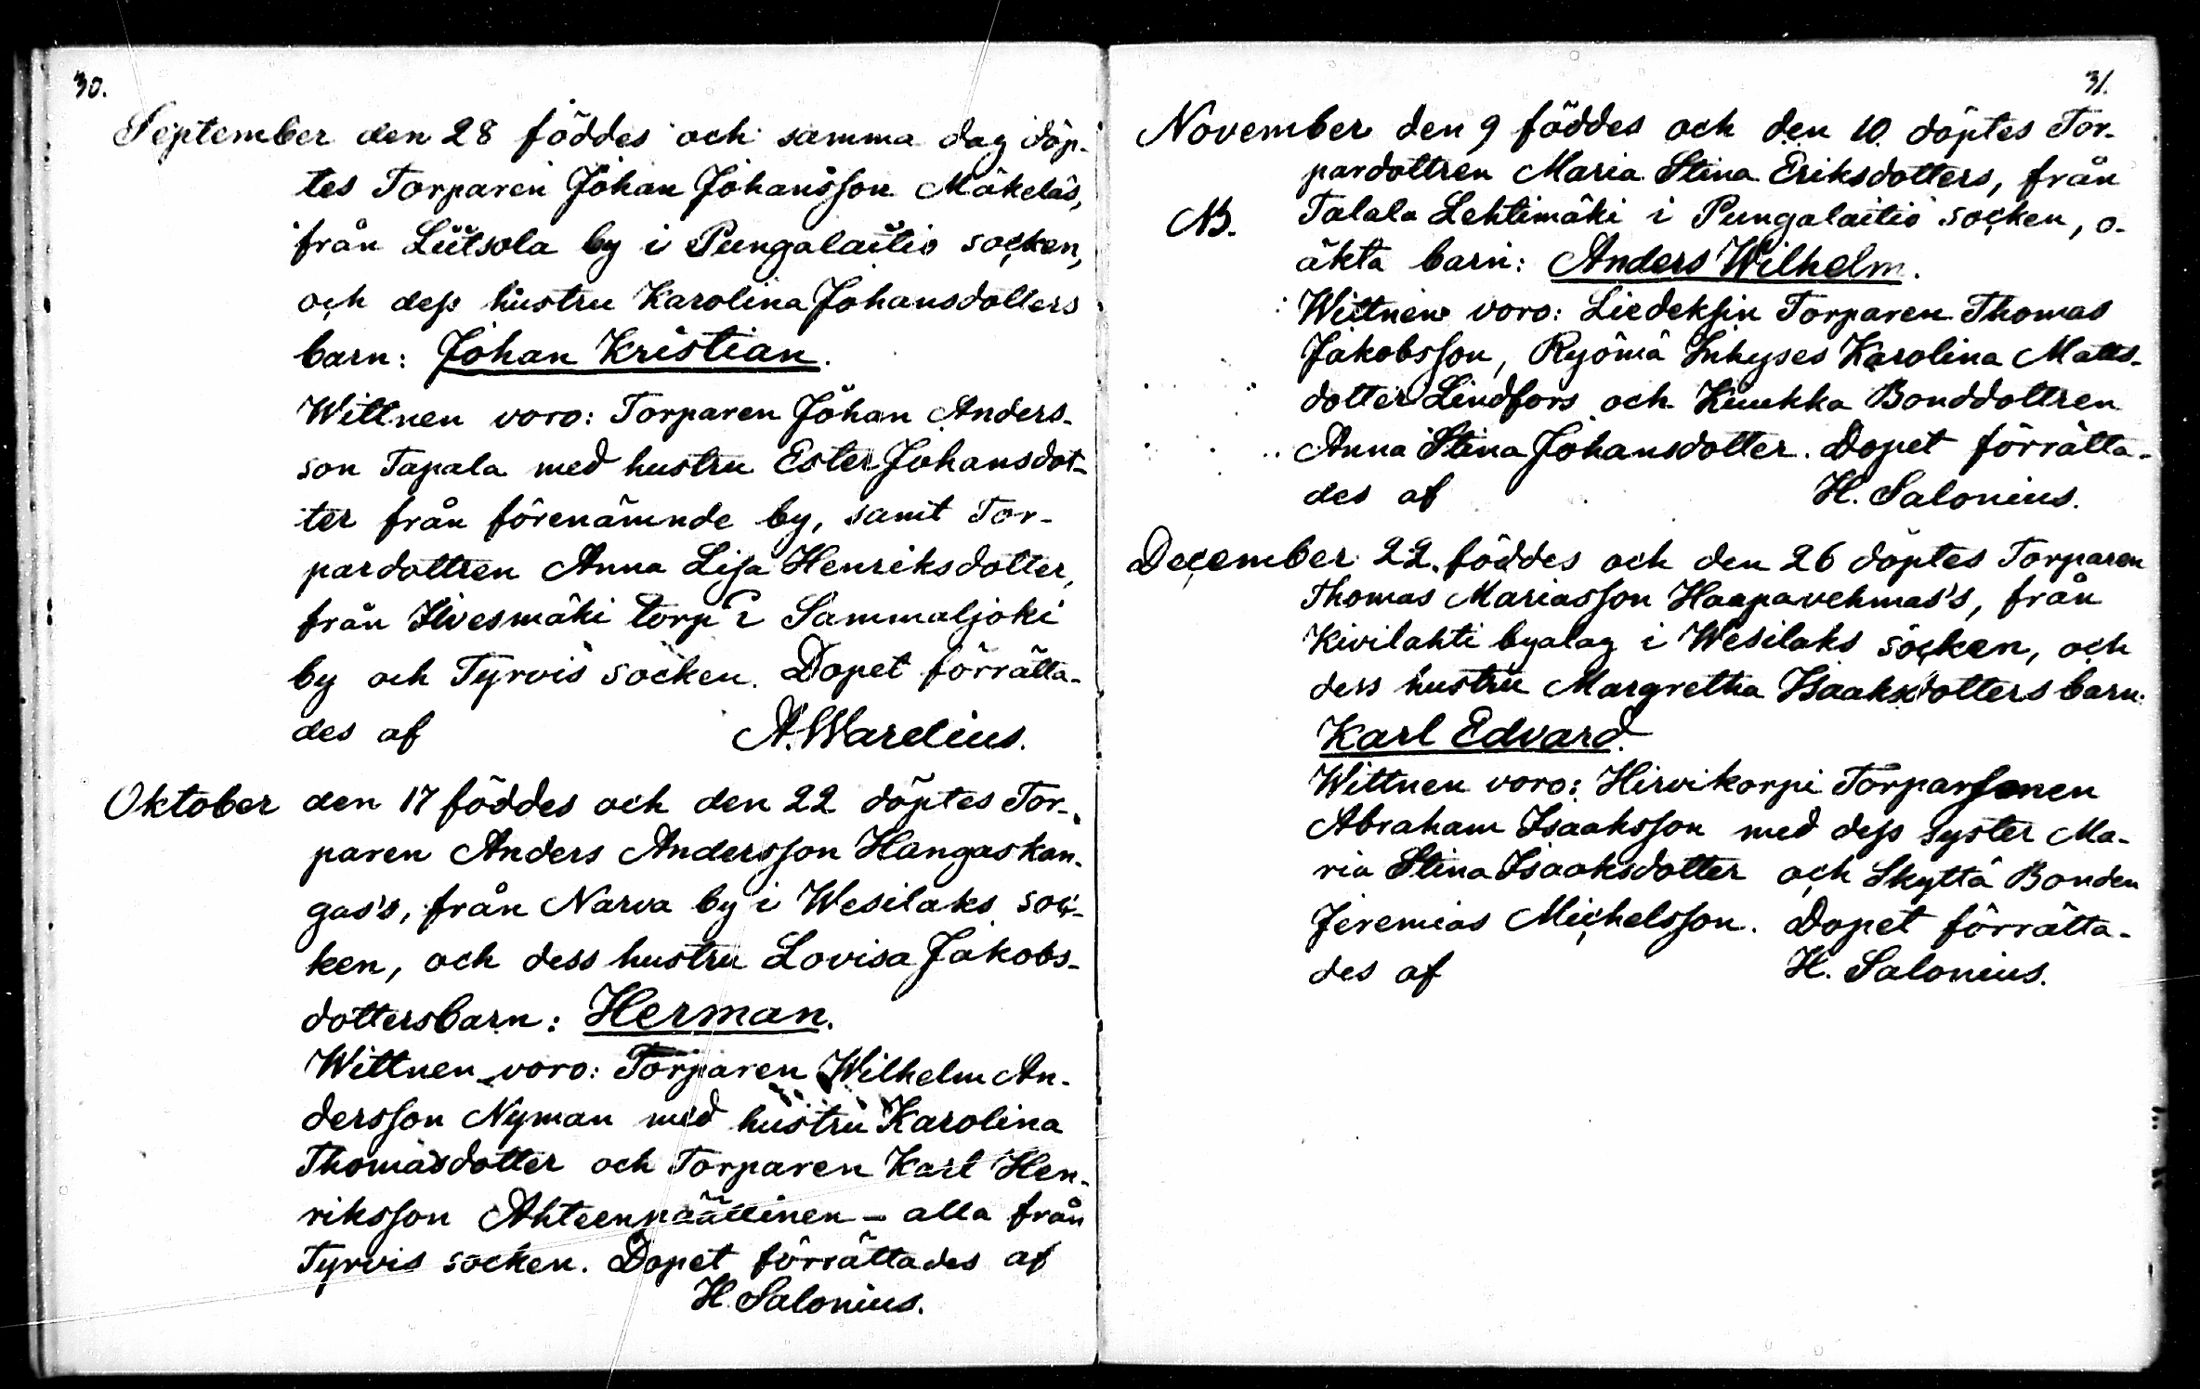 30.
September den 28 föddes och samma dag döp-
tes Torparen Johan Johansson Mäkeläs,
från Liitsola by i Pungalaitio socken,
och dess hustru Karolina Johansdotters
barn: Johan Kristian.
Wittnen voro: Torparen Johan Anders-
son Tapala med hustru Ester Johansdot-
ter från förenämnde by, samt Tor-
pardottren Anna Lisa Henriksdotter,
från Ilvesmäki torp i Sammaljoki
by och Tyrvis socken. Dopet förrätta-
des af A. Warelius.
Oktober den 17 föddes och den 22 döptes Tor-
paren Anders Andersson Hangaskan-
gas's, från Narva by i Wesilaks soc-
ken, och dess hustru Lovisa Jakobs-
dottersbarn: Herman.
Wittnen voro: Torparen Wilhelm An-
dersson Nyman med hustru Karolina
Thomasdotter och Torparen Karl Hen-
riksson Ahteenpäällinen - alla från
Tyrvis socken. Dopet förrättades af
H. Salonius.
31.
November den 9 föddes och den 10. döptes Tor-
pardottren Maria Stina Eriksdotters, från
NB. Talala Lehtimäki i Pungalaitio socken, o-
äkta barn: Anders Wilhelm.
Wittnen voro: Liedeksin Torparen Thomas
Jakobsson, Ryömä Inhyses Karolina Matts-
dotter Lindfors och Kuukka Bonddottren
Anna Stina Johansdotter. Dopet förrätta-
des af H. Salonius.
December 22. föddes och den 26 döptes Torparen
Thomas Mariasson Haapavehmas's, från
Kivilahti byalag i Wesilaks socken, och
dess hustru Margretha Isaaksdotters barn:
Karl Edvard.
Wittnen voro: Hirvikorpi Torparsonen
Abraham Isaaksson med dess syster Ma-
ria Stina Isaaksdotter och Skyttä Bonden
Jeremias Michelsson. Dopet förrätta-
des af H. Salonius.